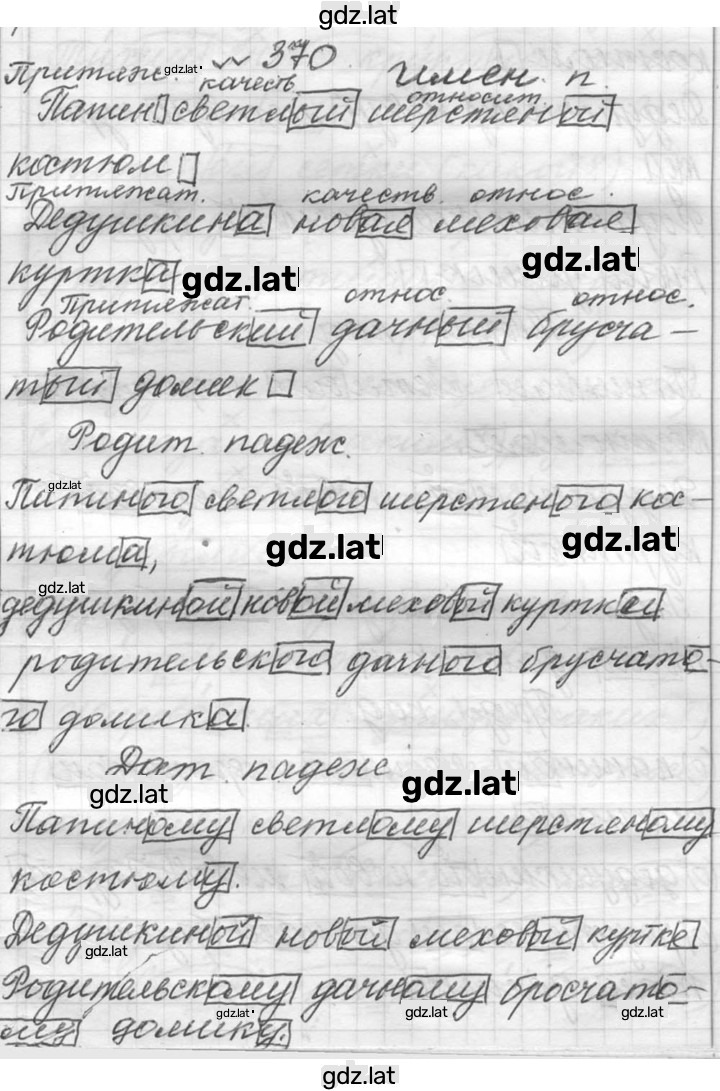 gdz.lat
№ 370
Притяж. gdz.lat качеств. Имен. п.
относит.
Папин светлый шерстяной
костюм
Притяжат. качеств. относ.
Дедушкина новая меховая
gdz.lat
куртка gdz.lat
Притяжат. относ. относ.
Родительский дачный брусча-
тый домик
Родит. падеж.
gdz.lat
Папиного светлого шерстяного кос-
тюма, gdz.lat gdz.lat
gdz.lat
дедушкиной новой меховой куртки
родительского дачного брусчато-
го домика.
Дат. падеж
gdz.lat gdz.lat
Папиному светлому шерстяному
костюму.
Дедушкиной новой меховой куртке
gdz.lat
Родительскому дачному бросчато-
gdz.lat gdz.lat gdz.lat
му домику.
gdz.lat